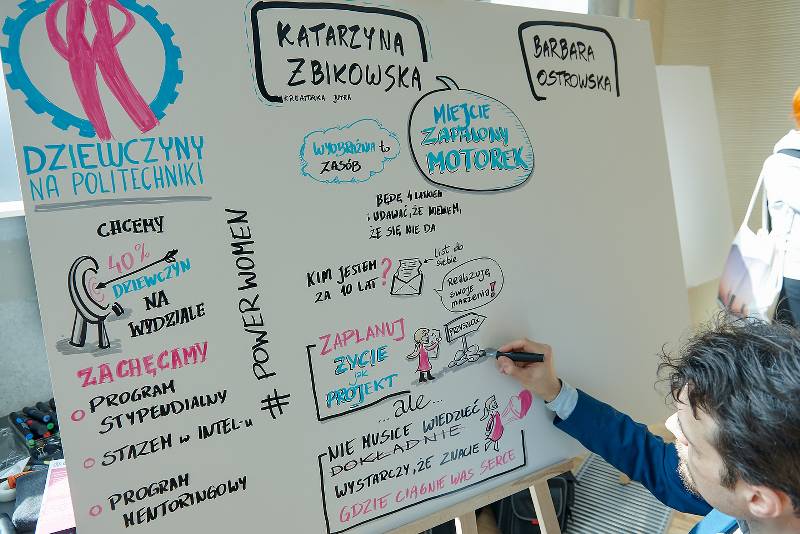 DZIEWCZYNY
NA POLITECHNIKI
CHCEMY
40%
DZIEWCZYN
NA
WYDZIALE
ZACHĘCAMY
PROGRAM
STYPENDIALNY
STAŻEM w INTEL-u
PROGRAM
MENTORINGOWY
# POWER WOMEN
KATARZYNA
ŻBIKOWSKA
KREATORKA JUTRA
MIEJCIE
ZAPALONY
MOTOREK
WYOBRAŹNIA to
ZASÓB
BĘDĘ 4 LATKIEM
i UDAWAĆ, ŻE NIEWIEM,
ŻE SIĘ NIE DA
KIM JESTEM
ZA 10 LAT?
list do
siebie
Realizuję
swoje
marzenia!
ZAPLANUJ
ŻYCIE
jak
PROJEKT
PRZYSZŁOŚĆ
...ale...
NIE MUSICE WIEDZIEĆ
DOKŁADNIE
WYSTARCZY, ŻE ZNACIE
GDZIE CIĄGNIE WAS SERCE
BARBARA
OSTROWSKA